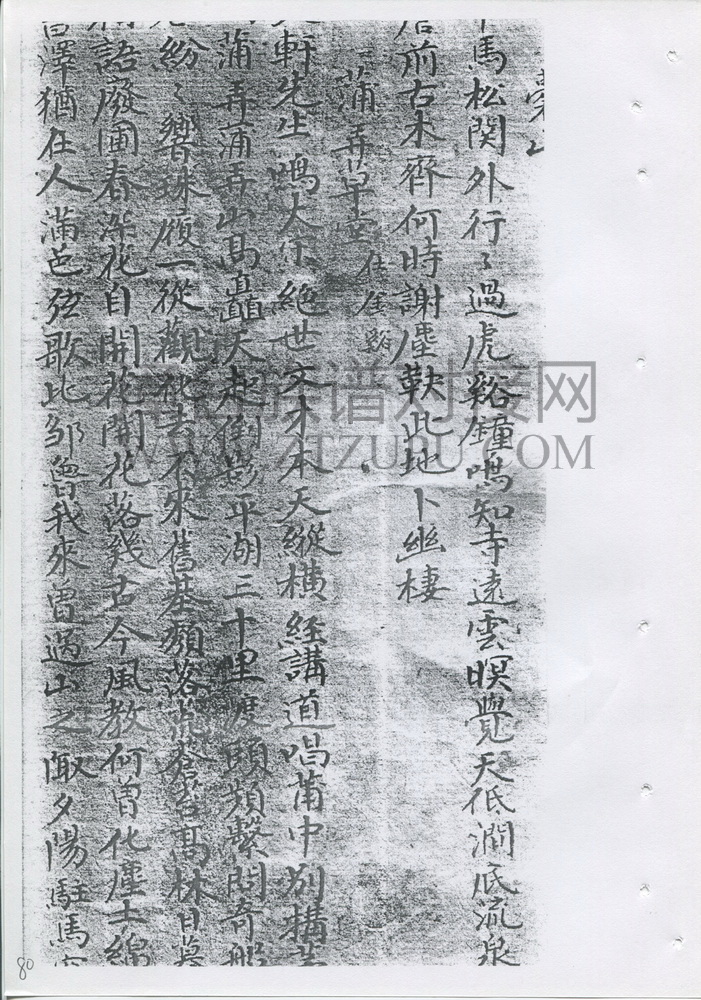 馬松関外行々過虎谿鐘鳴知寺遠雲暝覺天低澗底流泉
前古木齊何時謝塵鞅此地卜幽棲
蒲弄草堂 在金谿
軒先生鳴大絶世文才本天縱橫經講道唱蒲中別構
蒲弄蒲弄山高矗天起倒影平湖三十里渡頭頻繫問奇船
紛々響珠履一從觀化去不來舊基頽落蒼苔高林日莫
語廢圃春深花自開花開花落幾古今風教何曾化塵土綿
澤猶在人滿邑弦歌比鄒魯我來曾過山之陬夕陽駐馬
80
族谱对接网
WWW.ZTZUPU.COM